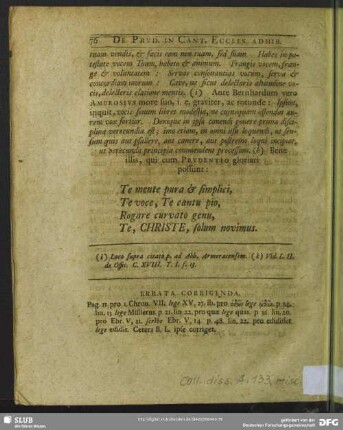 76 DE PRUD. IN CANT. ECCLES. ADHIB.
tuam vendis, & facis eam non tuam, sed suam. Habes in po-
testate vocem Tuam, habeto & animum. Frangis vocem, fran-
ge & voluntatem: Servas consonantias vocum, serva &
concordiam morum: Cave, ne sicut delectaris altitudine vo-
cis, delecteris elatione mentis, (i) Ante Bernhardum vero
AMBROSIUS more suo, i. e. graviter, ac rotunde: Ipsum,
inquit, vocis sonum libret modestia, ne cujusquam offendat au-
rem vox fortior. Denique in ipso canendi genere prima disci-
plina verecundia est: imo etiam, in omni usu loquendi, ut sen-
sim quis aut psallere, aut canere, aut postremo loqui incipiat,
ut verecunda principia commendent processum. (k). Bene
illis, qui cum PRUDENTIO gloriari
possunt:
Te mente pura & simplici,
Te voce, Te cantu pio,
Rogare curvato genu,
Te, CHRISTE, solum novimus.
(i) Loco supra citato p. ad Abb. Armoracensem. (k) Vid. L. II.
de Offic. C. XVIII. T. I. f. 15.
ERRATA CORRIGENDA.
Pag. 11. pro 2. Chron. VII. lege XV, 27. ib. pro lege p. 24.
lin. 13 lege Müllerus p. 21. lin. 22. pro que lege quis. p. 36. lin. 20.
pro Ebr. V, 21. scribe Ebr. V, 14. p. 48. lin. 22. pro
lege Cetera B. L. ipse corriget.
Coll. diss. A. 133, misc
SLUB
Wir führen Wissen.
http://digital.slub-dresden.de/
gefördert von der
Deutschen Forschungsgemeinschaft
DFG